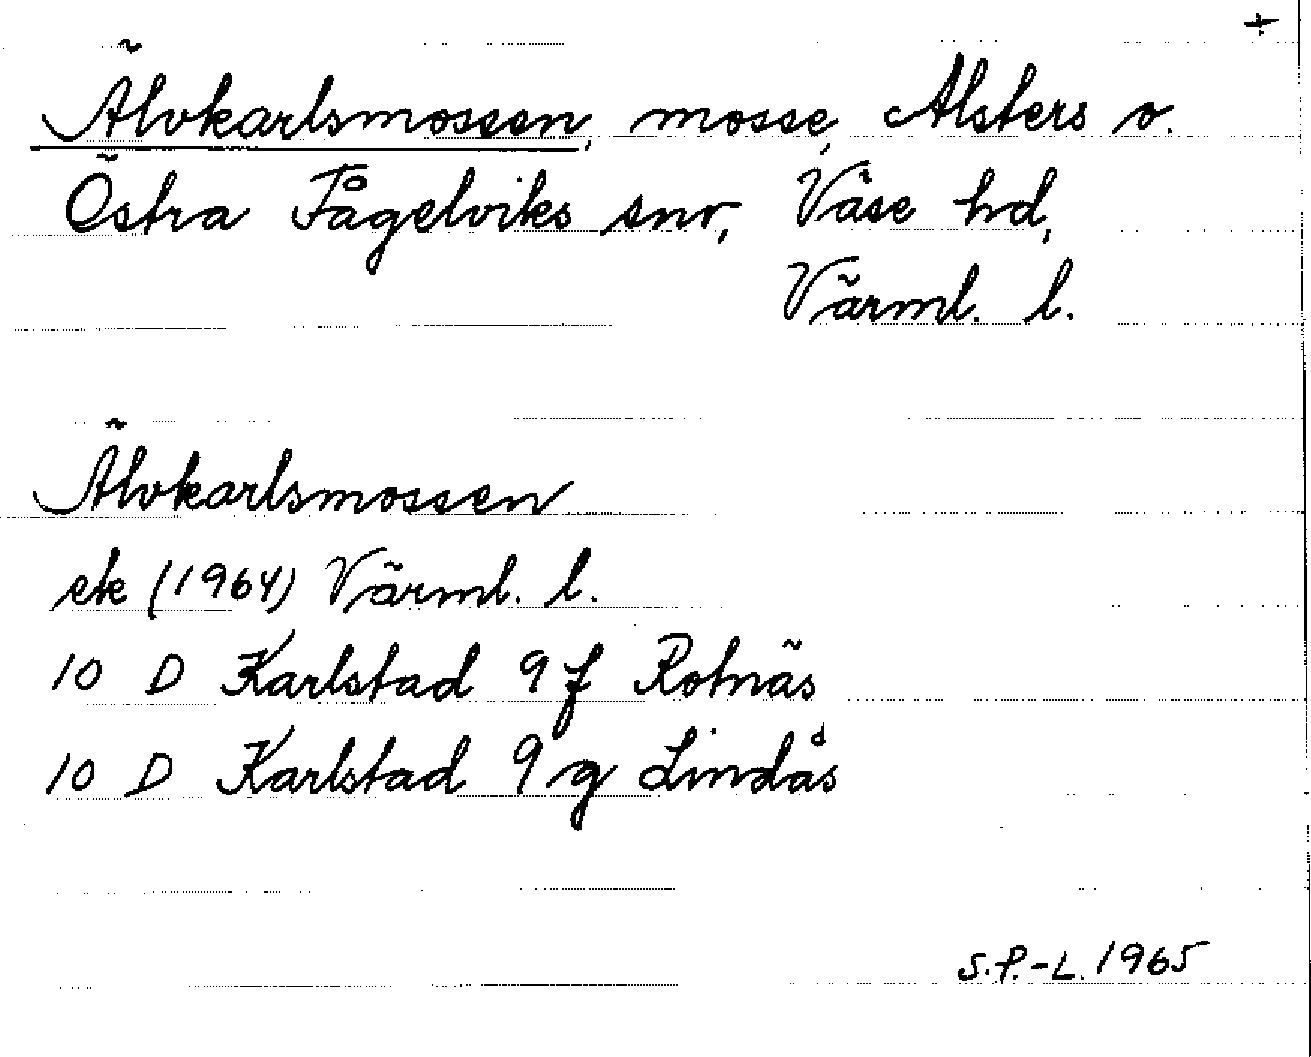 +
Älvkarlsmossen, mosse, Alsters o.
Östra Fågelviks snr, Väse hd,
Värml. l.
Älvkarlsmossen
ek (1964) Värml. l.
10 D Karlstad 9 f Rotnäs
10 D Karlstad 9 g Lindås
S.P.-L. 1965